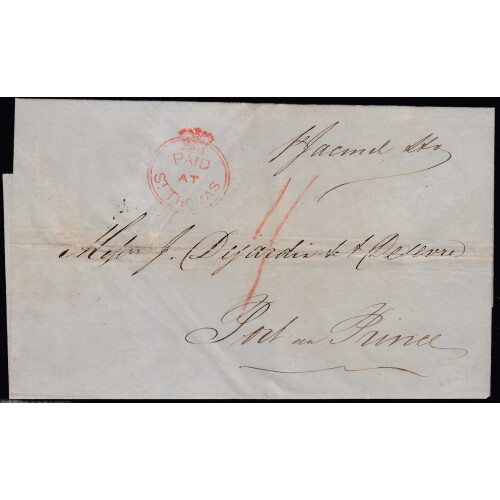 PAID
AT
ST THOMAS
Jacmel
Messrs J. Dejardin & Deserre
Port au Prince